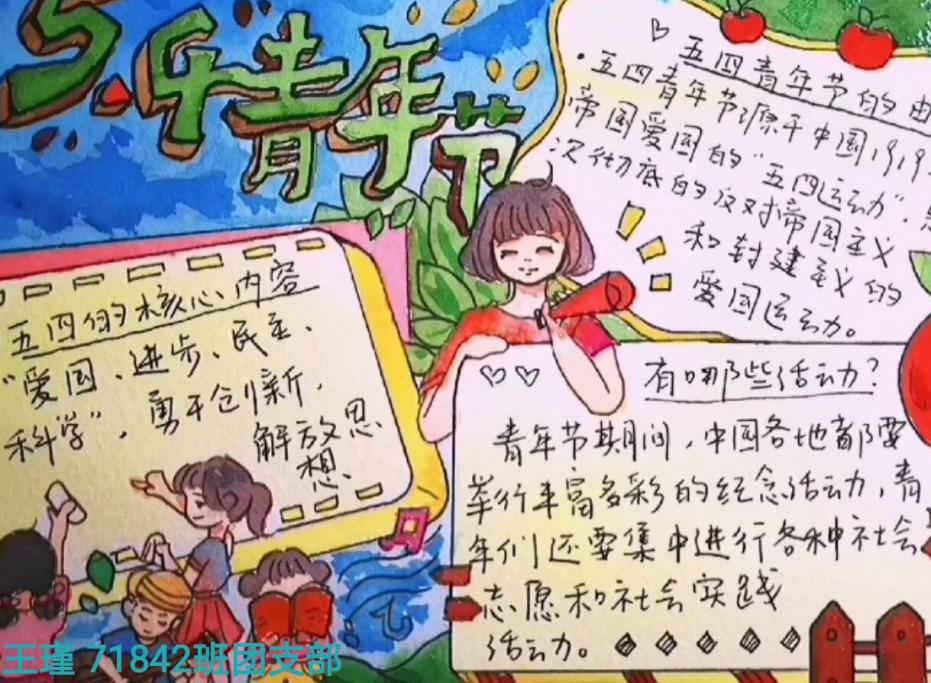 5.4青年节
五四青年节的由
·五四青年节源于中国1919
帝国爱国的“五四运动”.
次彻底的反对帝国主义
和封建主义的
爱国运动。
五四的核心内容
“爱国、进步、民主、
科学”，勇于创新，
解放思
想、
有哪些活动？
青年节期间，中国各地都要
举行丰富多彩的纪念活动，青
年们还要集中进行各种社会
志愿和社会实践
活动。
王瑾 71842班团支部